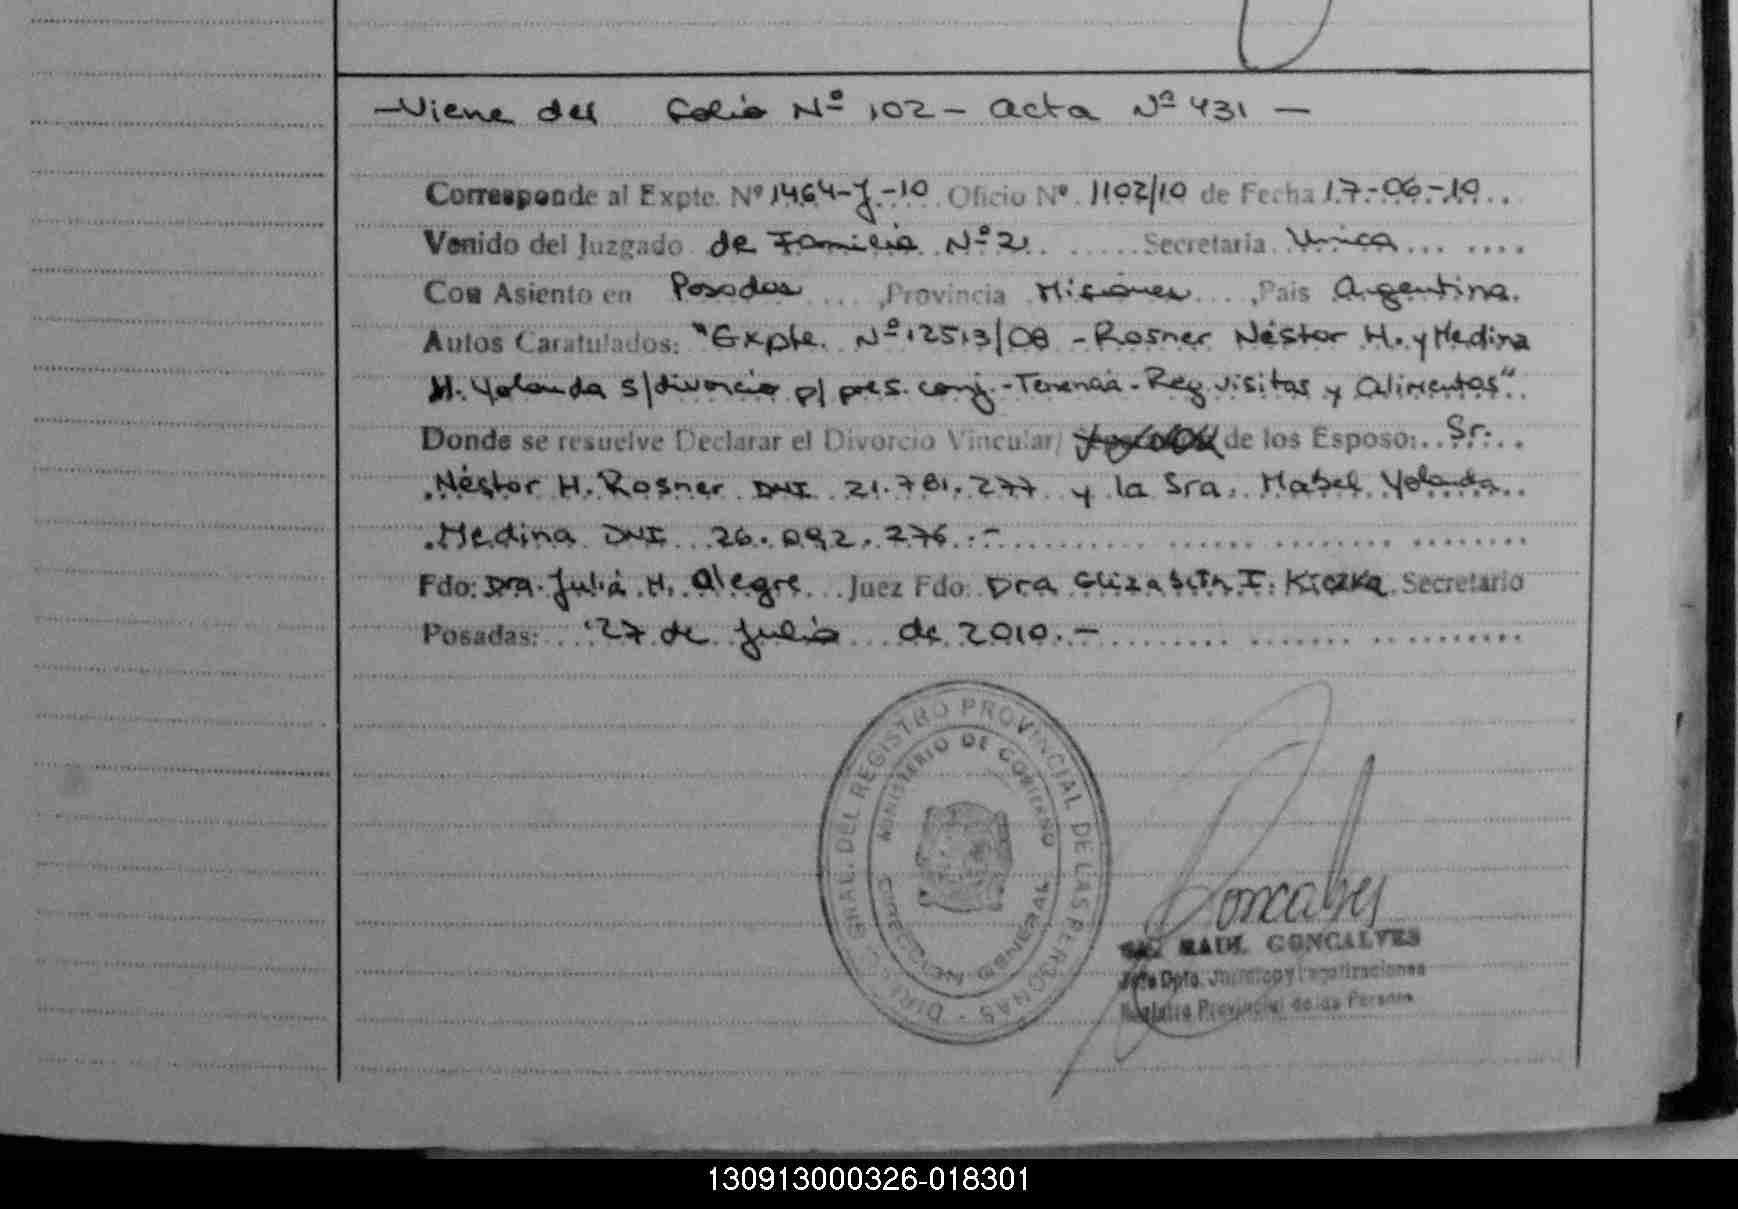 -Viene del Folio Nº 102 - acta Nº 431 -
Corresponde al Expte. Nº 1464-J-10 Oficio Nº 1102/10 de Fecha 17-06-10
Venido del Juzgado de Familia Nº 2 Secretaría Unica
Con Asiento en Posadas, Provincia Misiones, Pais Argentina.
Autos Caratulados: "Expte. Nº 12513/08 - Rosner Néstor H. y Medina
M. Yolanda s/divorcio p/ pres. conj. - Tenencia - Reg. visitas y alimentos"
Donde se resuelve Declarar el Divorcio Vincular/ de los Esposo: Sr.
Néstor H. Rosner DNI 21.781.277 y la Sra. Mabel Yolanda
Medina DNI 26.092.276.-
Fdo: Dra. Julia H. Alegre Juez Fdo: Dra Elizabeth I. Kiczka Secretario
Posadas: 27 de Julio de 2010.-
DIREC. GRAL. DEL REGISTRO PROVINCIAL DE LAS PERSONAS
MINISTERIO DE GOBIERNO
DIRECCION GENERAL
Goncalves
RAUL GONCALVES
Jefe Dpto. Jurídico y Legalizaciones
Registro Provincial de las Personas
130913000326-018301